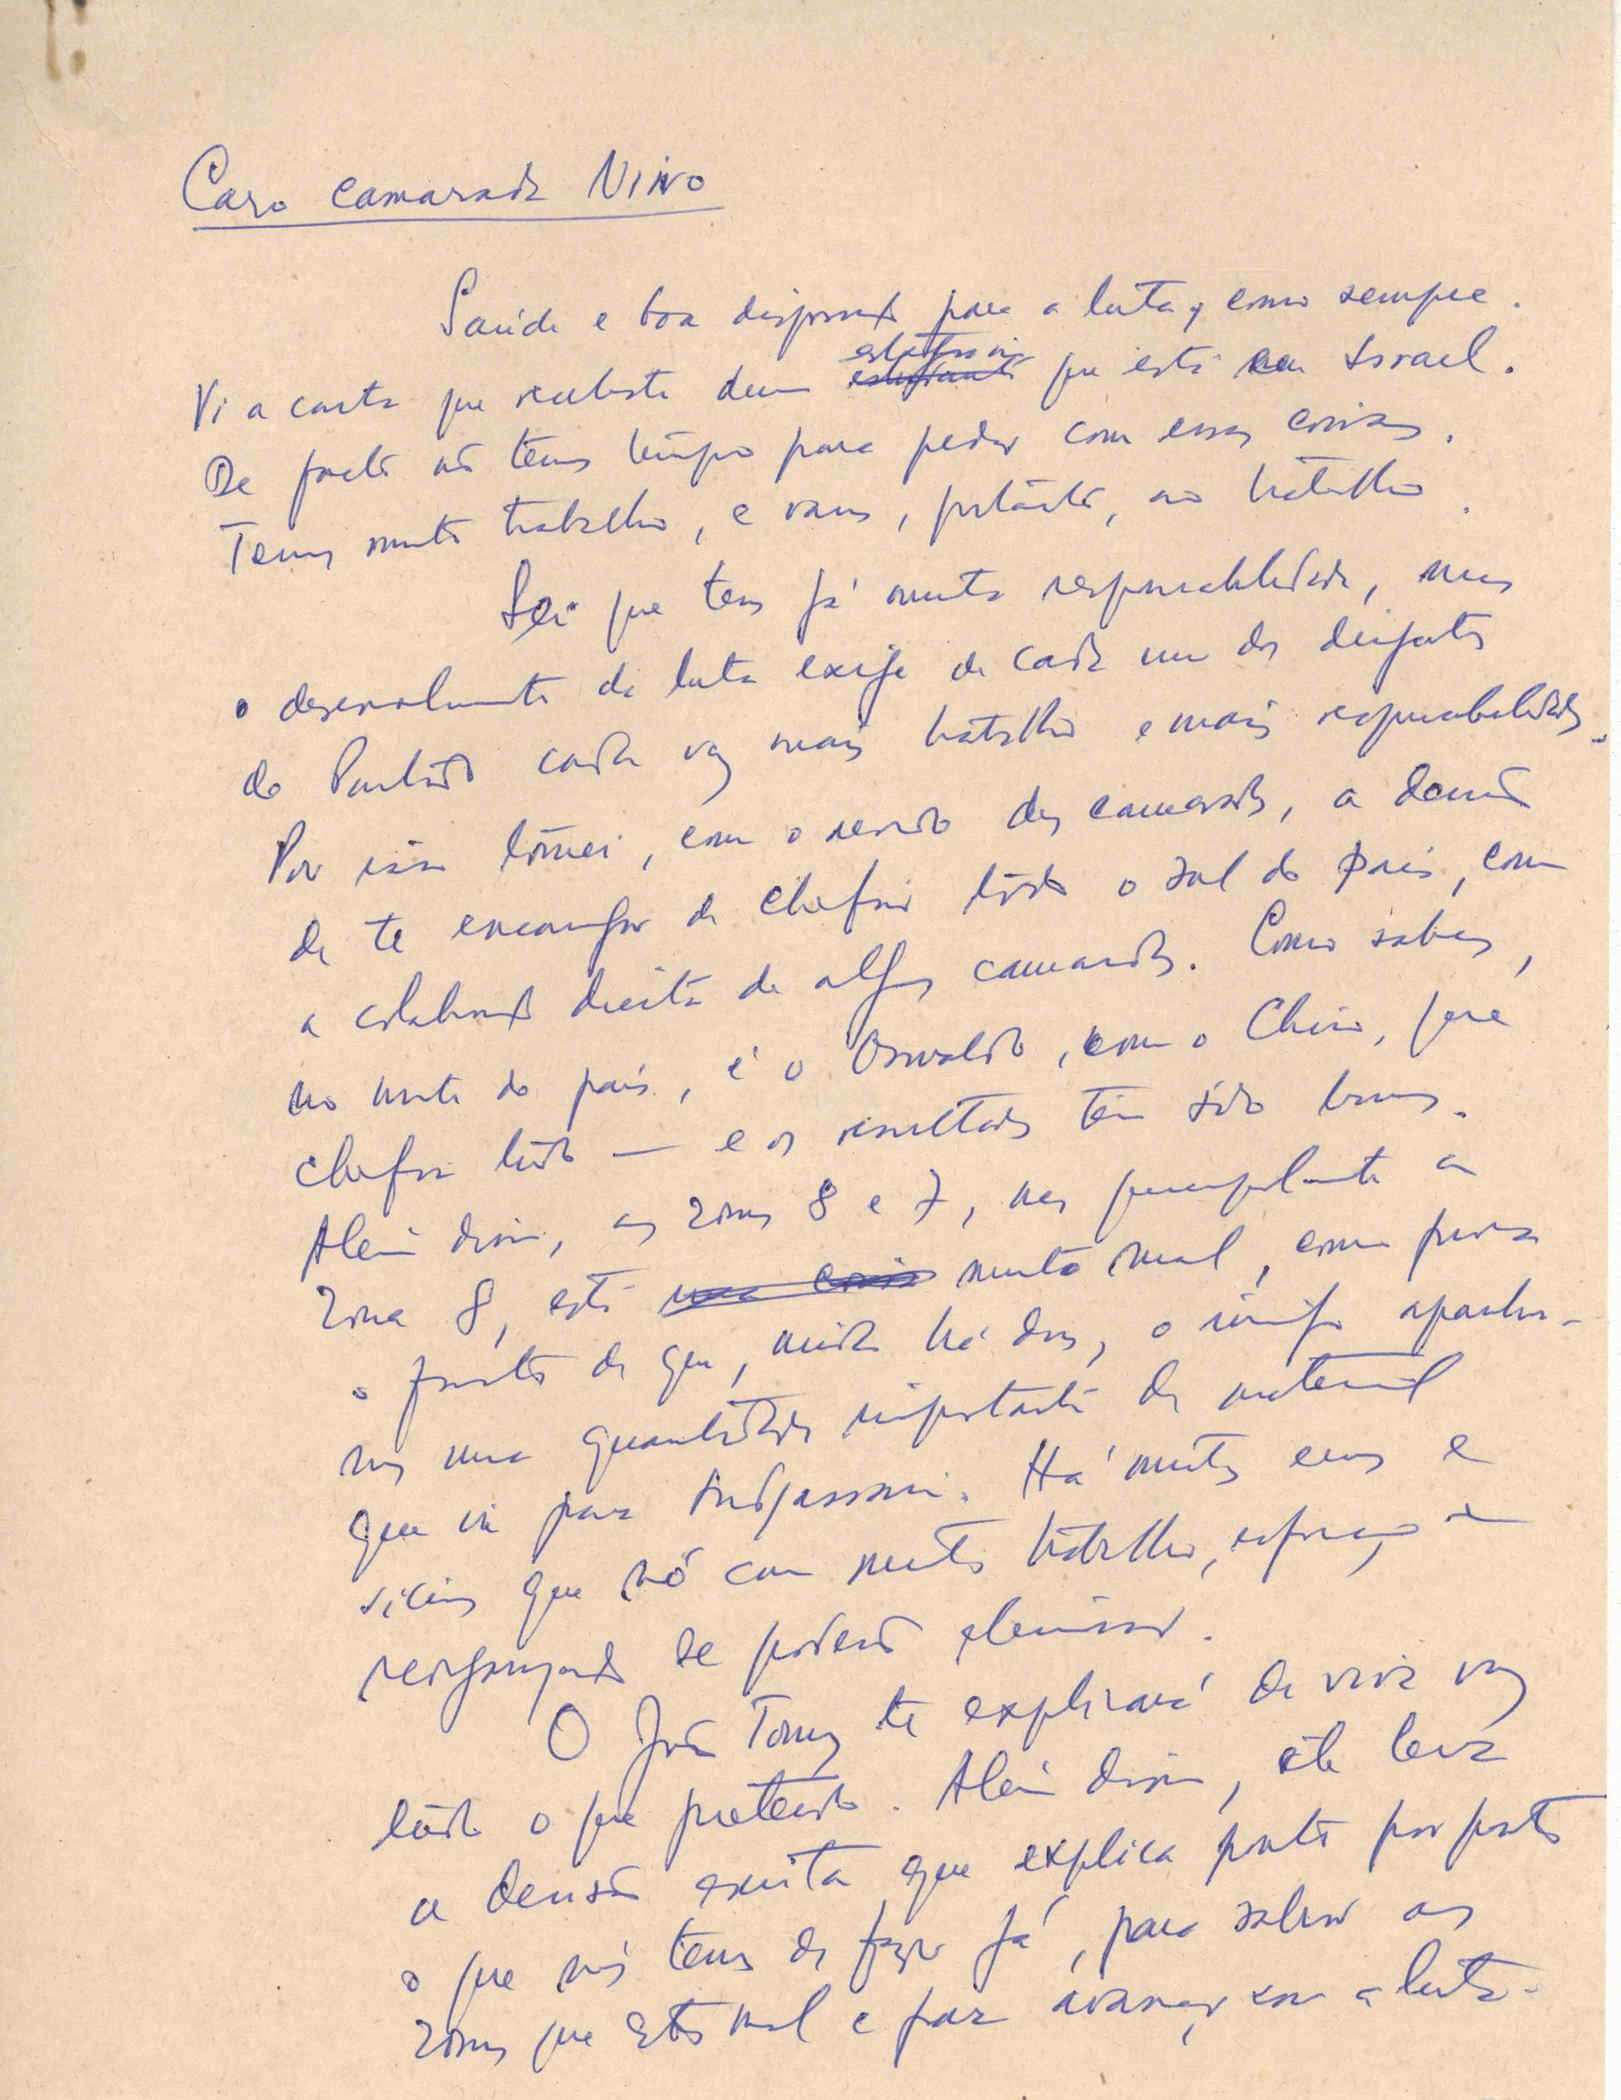 Caro camarada NINO
Saúde e boa disposição para a luta, como sempre.
Vi a carta que recebeste dum que está em Israel.
De facto não temos tempo para perder com essas coisas.
Temos muito trabalho, e vamos, portanto, ao trabalho.
Sei que tens já muita responsabilidade, mas
o desenvolvimento da luta exige de cada um dos dirigentes
do Partido cada vez mais trabalho e mais responsabilidades.
Por isso tomei, com o acordo dos camaradas, a decisão
de te encarregar de chefiar todo o sul do país, com
a colaboração directa de alguns camaradas. Como sabes,
no norte do país, é o Osvaldo, com o Chico, que
chefia tudo — e os resultados têm sido bons.
Além disso, as zonas 8 e 7, mas principalmente a
zona 8, está muito mal, como prova
o facto de que, ainda há dias, o inimigo apanhou-
nos uma quantidade importante de material
que ia para Indjassani. Há muitos erros e
vícios que só com muito trabalho, esforço e
reorganização se poderão eliminar.
O João Tomaz te explicará de viva voz
tudo o que pretendo. Além disso, ele leva
a decisão escrita que explica ponto por ponto
o que nós temos de fazer já, para salvar as
zonas que estão mal e para avançar com a luta.